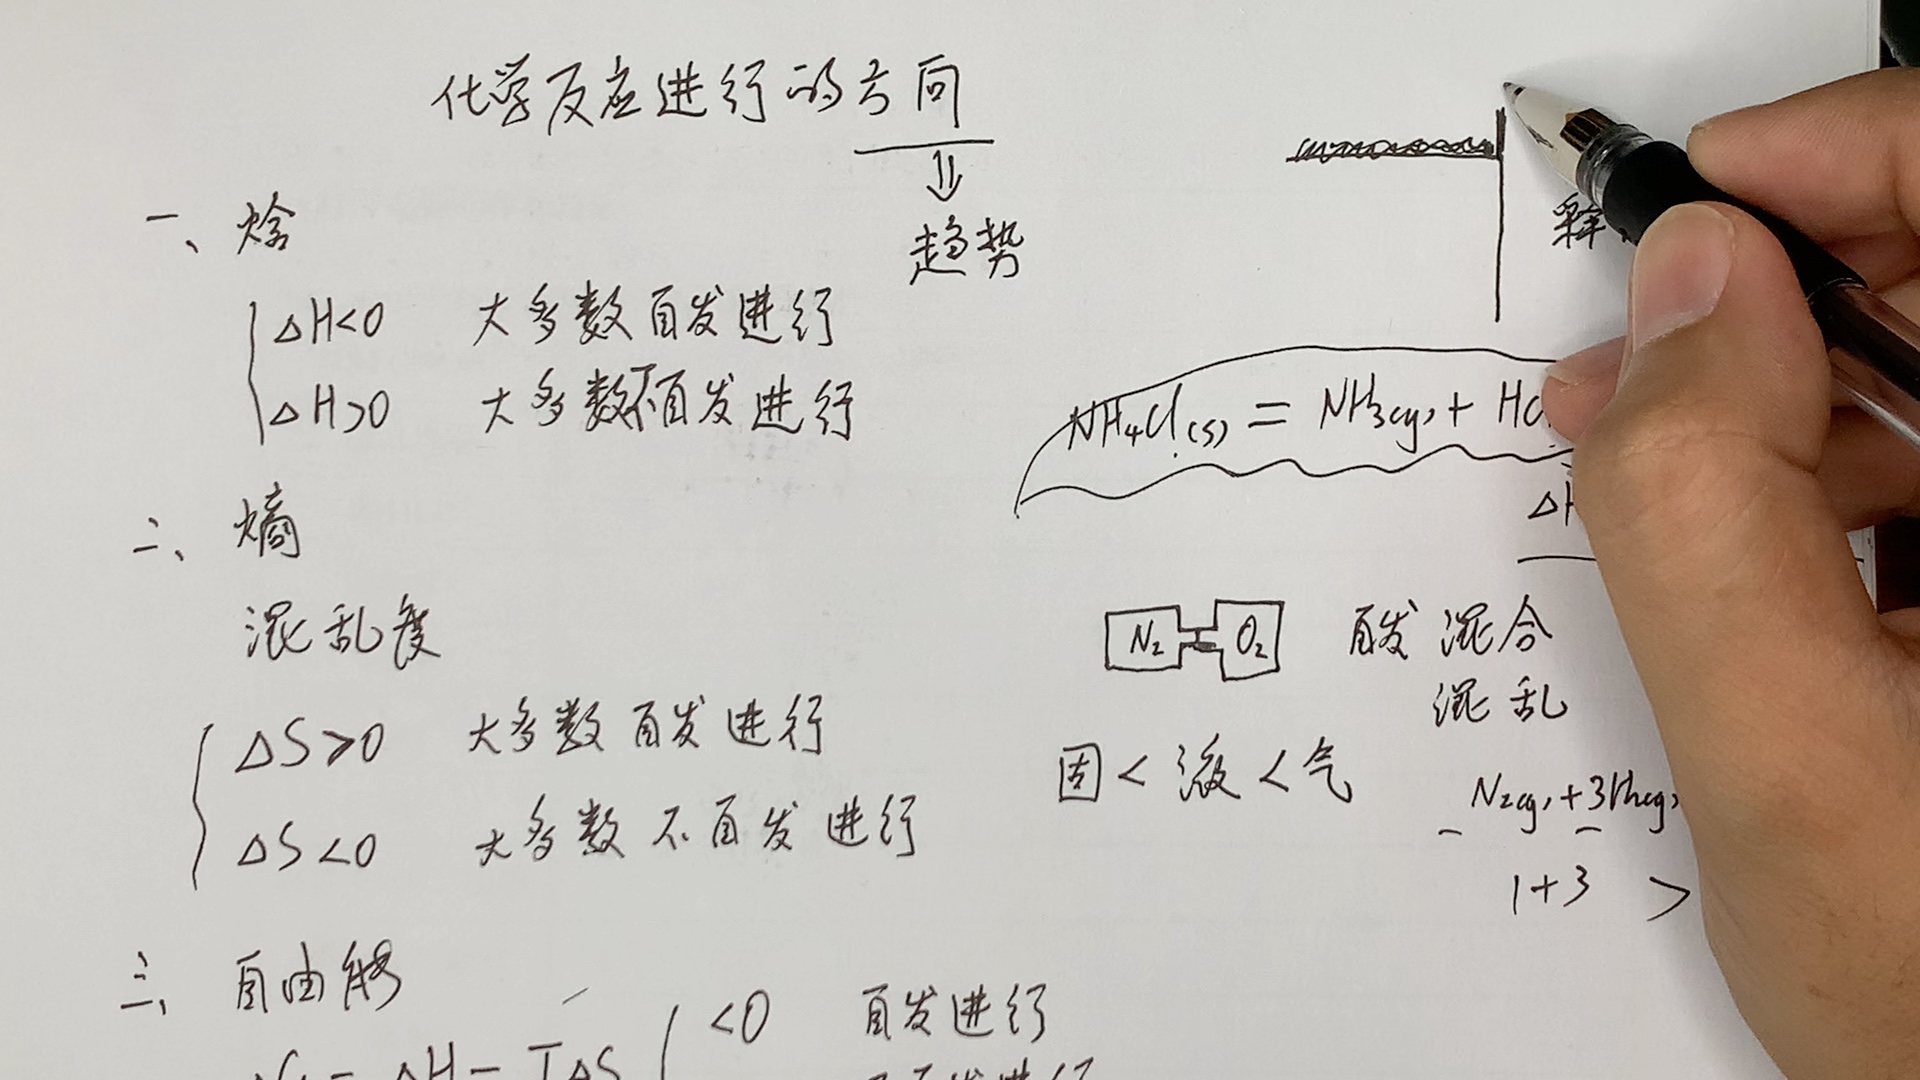 化学反应进行的方向
趋势
一、焓
△H<0 大多数自发进行
△H>0 大多数不自发进行
二、熵
混乱度
△S>0 大多数自发进行
△S<0 大多数不自发进行
三、自由能
△H-T△S
<0 自发进行
释
NH₄Cl(s) = NH₃(g) + HC
△H
N₂ O₂ 自发混合
混乱
固<液<气
N₂(g)+3H₂(g)
1+3 >